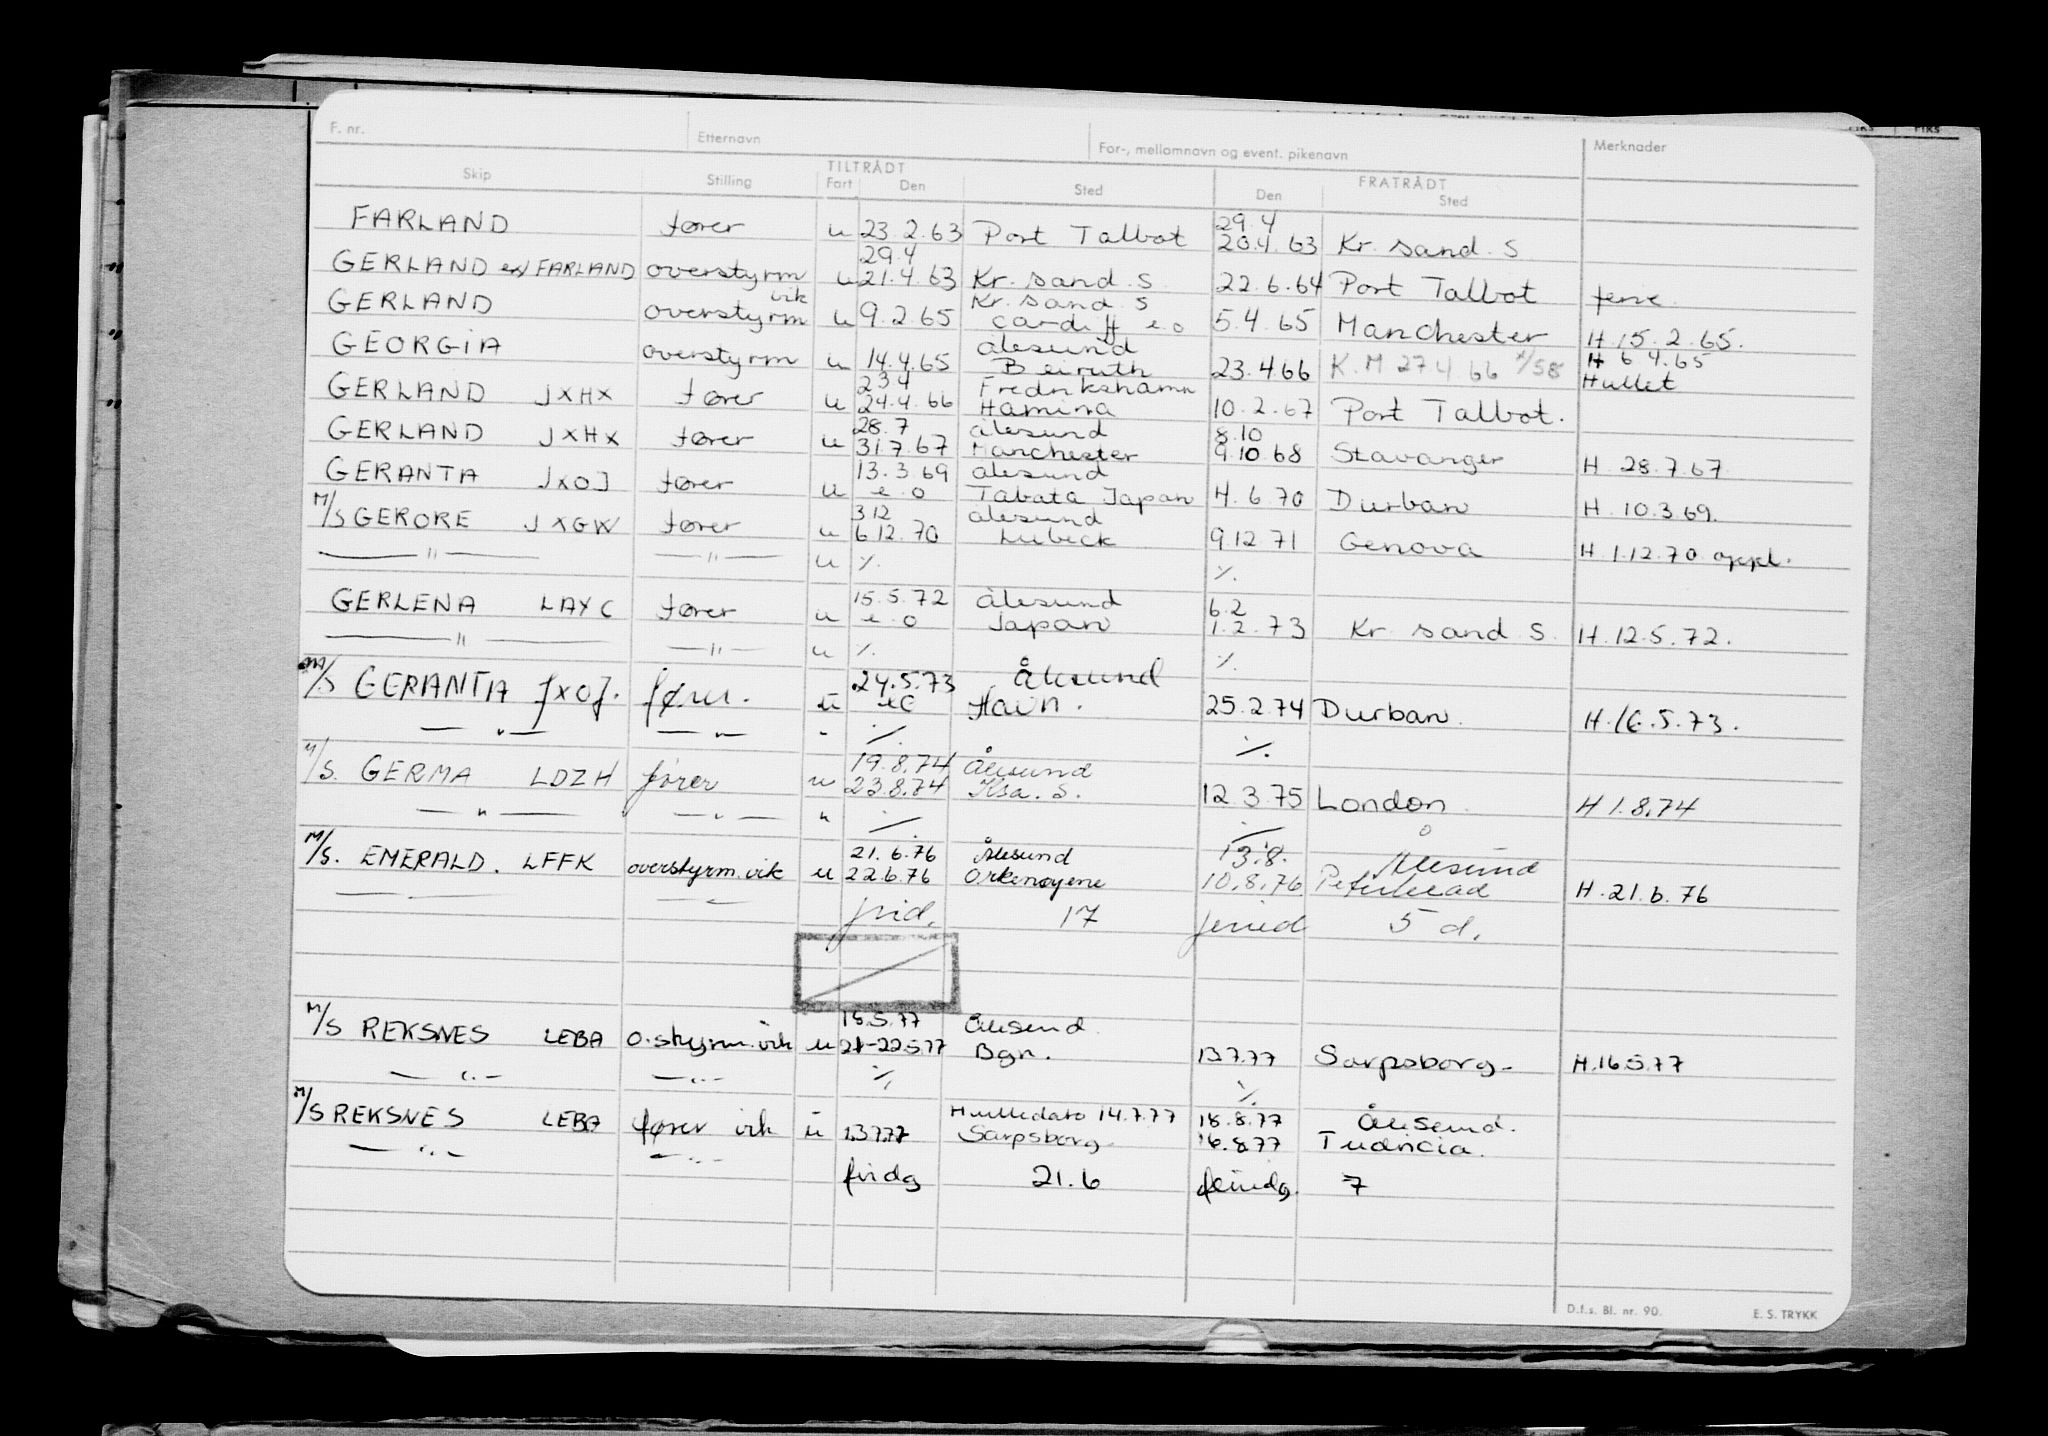 F. nr. Etternavn For-, mellomnavn og event. pikenavn Merknader
TILTRÅDT FRATRÅDT
Skip Stilling Fart Den Sted Den Sted
29.4
FARLAND fører u 23.2.63 Port Talbot 20.4.63 Kr. sand. S
29.4
GERLAND ex/ FARLAND overstyrm u 21.4.63 Kr. sand. S. 22.6.64 Port Talbot ferie.
vik Kr. sand. S
GERLAND overstyrm u 9.2.65 Cardiff e.o 5.4.65 Manchester H. 15.2.65.
Ålesund H 6 4.65
GEORGIA overstyrm u 14.4.65 Beiruth 23.4 66 K.M 27 4.66 Hullet
23 4 Fredrikshamn
GERLAND JXHX fører u 24.4.66 Hamina 10.2.67 Port Talbot.
28.7 Ålesund 8.10
GERLAND JXHX fører u 31.7.67 Manchester 9.10.68 Stavanger H. 28.7.67.
13.3.69 Ålesund
GERANTA JXOJ fører u e.o Tabata Japan 4.6.70 Durban H. 10.3 69.
3 12 Ålesund
M/S GERORE JXGW fører u 6.12.70 Lübeck 9.12.71 Genova H. 1.12.70 oppl.
— " — — " — u %. %.
15.5.72 Ålesund 6.2
GERLENA LAYC fører u e.o Japan 1.2.73 Kr. sand. S. H. 12.5.72.
— " — — " — u %. %.
24.5.73 Ålesund
M/S GERANTA JXOJ. fører. u eo Havn. 25.2.74 Durban. H. 16.5.73.
— " — — " — " %. %.
19.8.74 Ålesund
M/S. GERMA LDZH fører u 23.8.74 Ksa. S. 12.3.75 London. H 1.8.74
— " — — " — " % %
21.6.76 Ålesund 13.8. Ålesund
M/S. EMERALD. LFFK overstyrm. vik u 22.6.76 Orkenøyene 10.8.76 Peterhead H. 21.6.76
frid. 17 feried 5 d.
18.5.77 Ålesund.
M/S REKSNES LEBA o.styrm. vik u 21-22.5.77 Bgn. 13.7.77 Sarpsborg- H. 16.5.77
— " — — " — %. %.
Hulledato 14.7.77 18.8.77 Ålesund.
M/S REKSNES LEBA fører vik u 13.7.77 Sarpsborg 16.8.77
— " — — " —
fridg 21.6 feriedg. 7
D.f.s. Bl. nr. 90. E. S. TRYKK